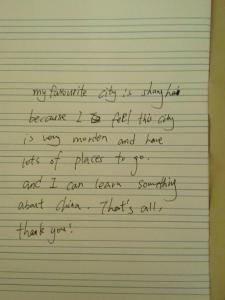 my favourite city is shanghai
because I feel this city
is very morden and have
lots of places to go.
and I can learn something
about China. That's all,
thank you!